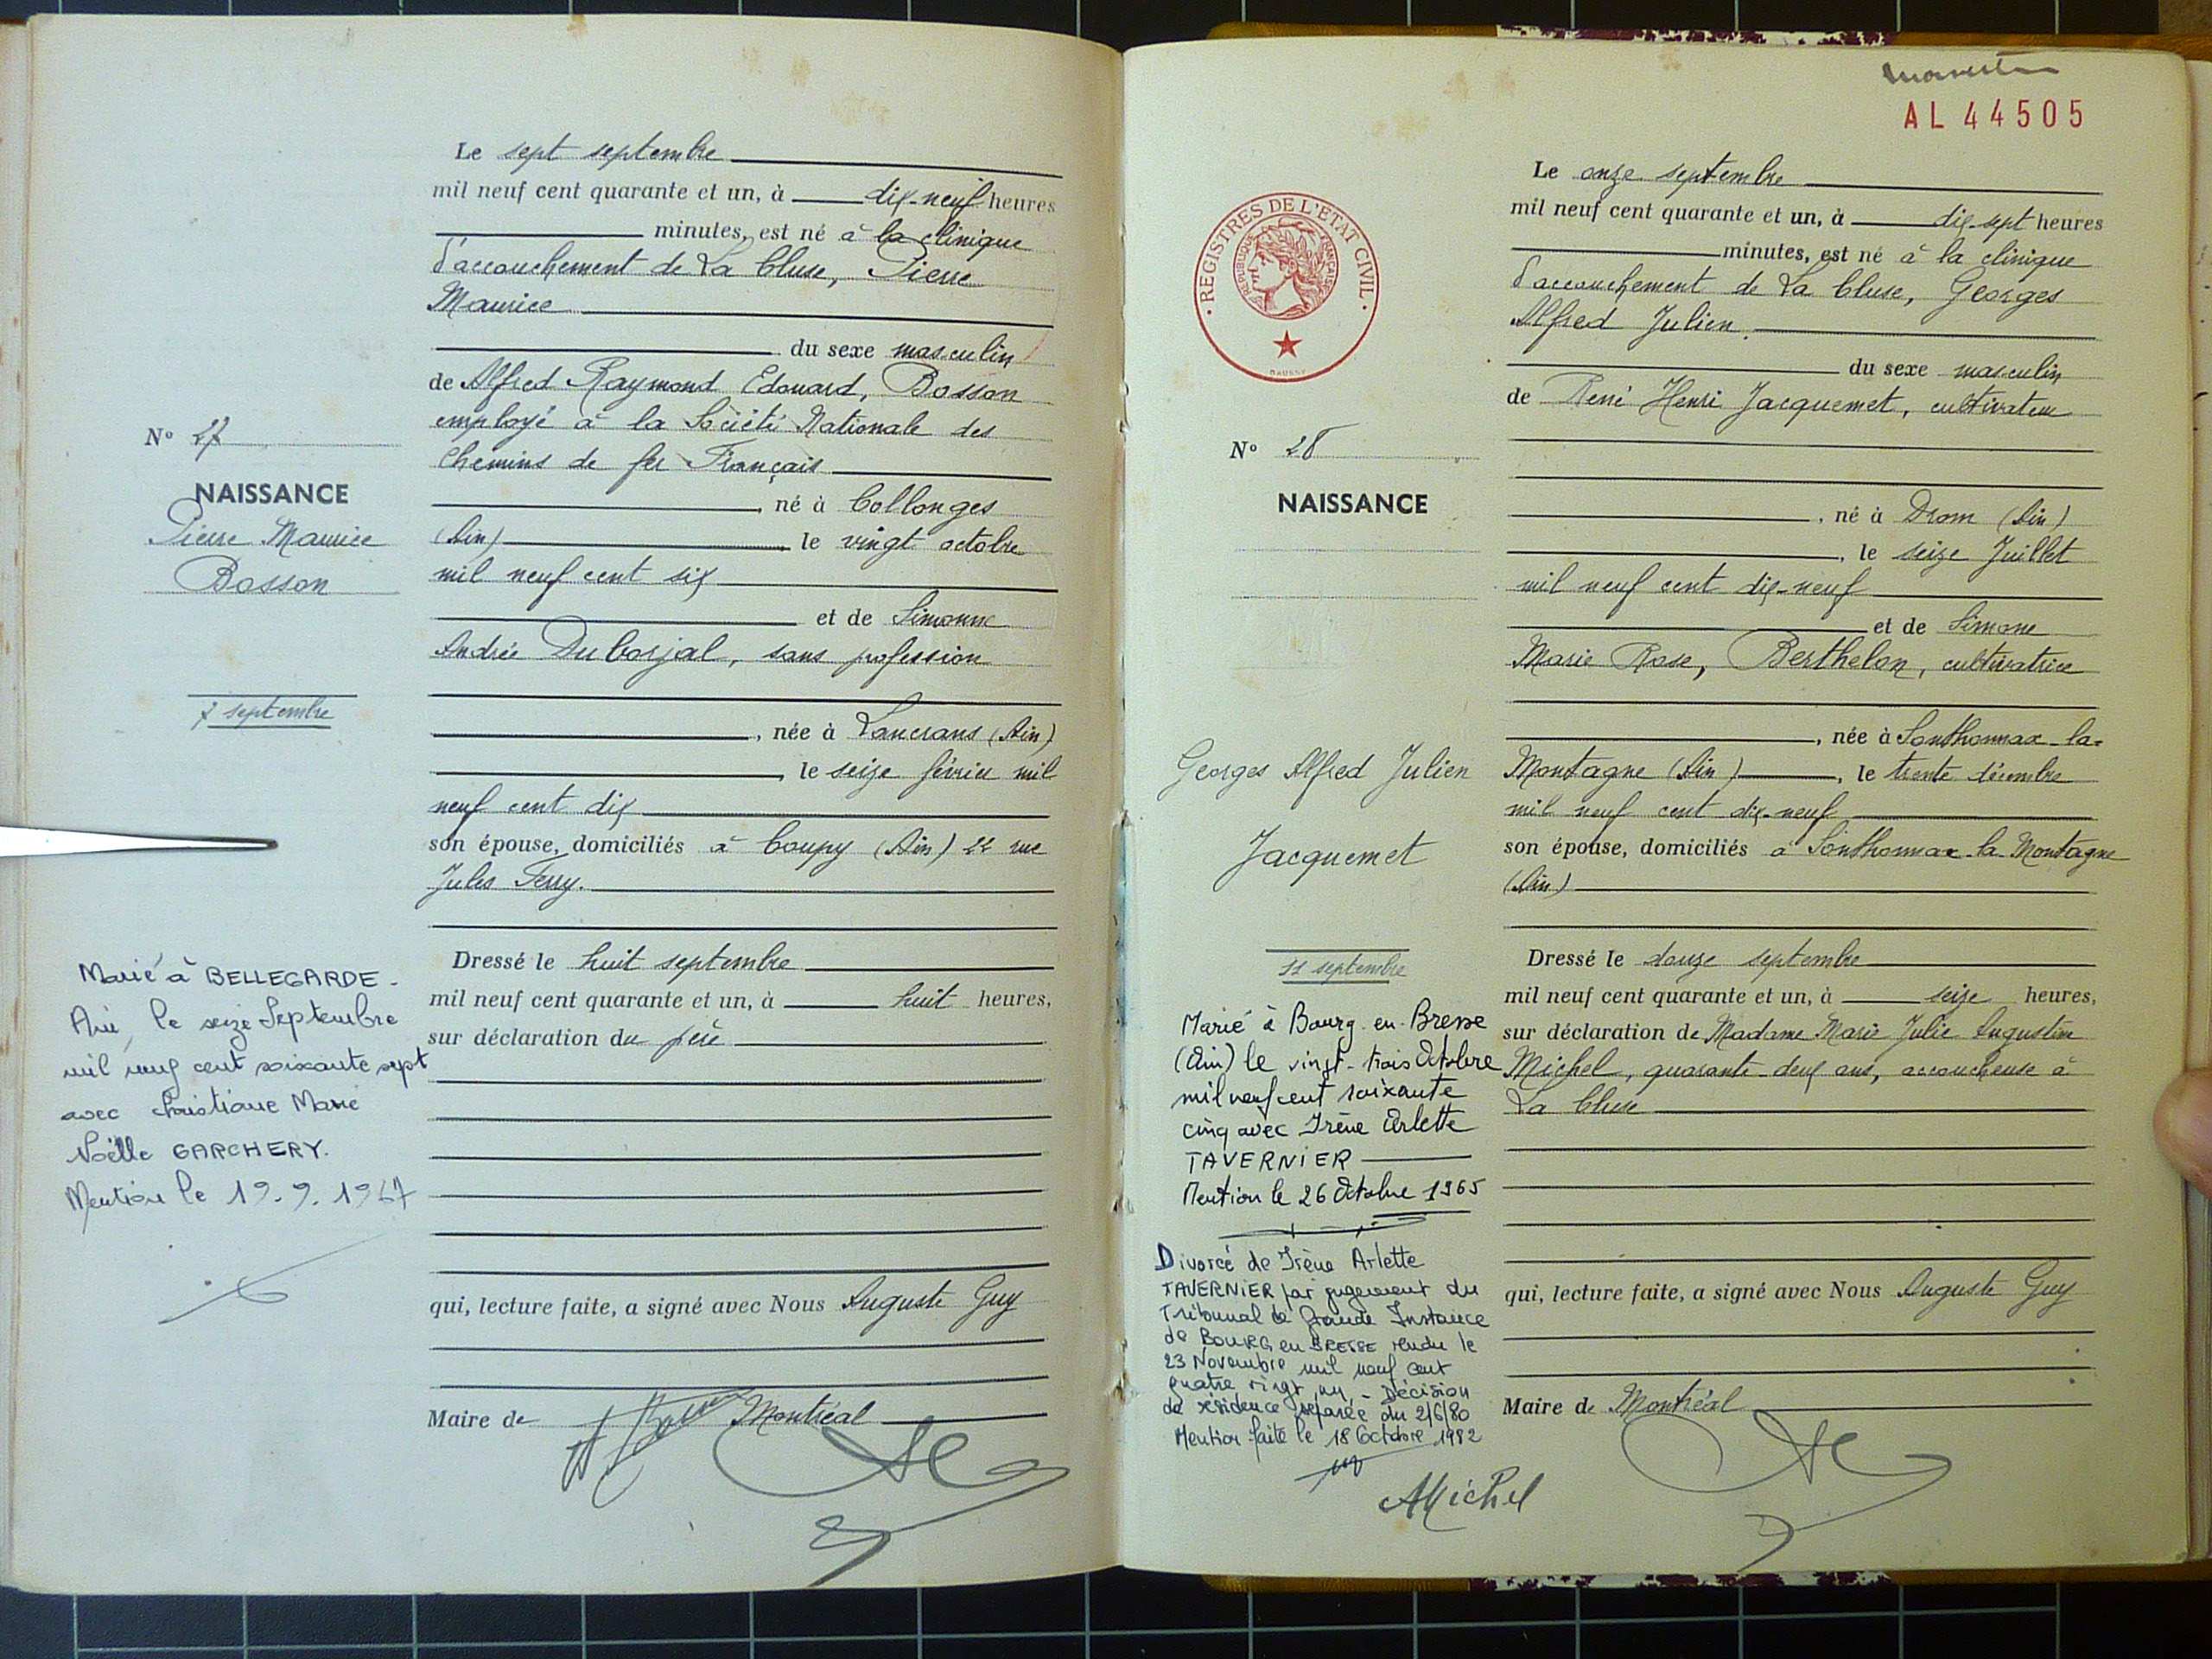 Le sept septembre
mil neuf cent quarante et un, à dix-neuf heures
minutes, est né à la clinique
d'accouchement de La Cluse, Pierre
Maurice
du sexe masculin
de Alfred Raymond Edouard, Bosson
employé à la Société Nationale des
Chemins de fer Français
, né à Collonges
(Ain) le vingt octobre
mil neuf cent six
et de Simonne
Andrée Duborjal, sans profession
, née à Lancrans (Ain)
, le seize février mil
neuf cent dix
son épouse, domiciliés à Coupy (Ain) 22 rue
Jules Ferry.
Dressé le huit septembre
mil neuf cent quarante et un, à huit heures,
sur déclaration du père
qui, lecture faite, a signé avec Nous Auguste Guy
Maire de Montréal
N° 27
NAISSANCE
Pierre Maurice
Bosson
7 septembre
Marié à BELLEGARDE -
Ain, le seize Septembre
mil neuf cent soixante sept
avec Christiane Marie
Noëlle GARCHERY.
Mention le 19.9.1967
AL 44505
REGISTRES DE L'ETAT CIVIL
REPUBLIQUE FRANÇAISE
Le onze septembre
mil neuf cent quarante et un, à dix-sept heures
minutes, est né à la clinique
d'accouchement de La Cluse, Georges
Alfred Julien
du sexe masculin
de René Henri Jacquemet, cultivateur
, né à Drom (Ain)
, le seize Juillet
mil neuf cent dix-neuf
et de Simone
Marie Rose, Berthelon, cultivatrice
, née à Sonthonnax-la-
Montagne (Ain), le trente décembre
mil neuf cent dix-neuf
son épouse, domiciliés à Sonthonnax-la Montagne
(Ain)
Dressé le douze septembre
mil neuf cent quarante et un, à seize heures,
sur déclaration de Madame Marie Julie Augustine
Michel, quarante-deux ans, accoucheuse à
La Cluse
qui, lecture faite, a signé avec Nous Auguste Guy
Maire de Montréal
N° 28
NAISSANCE
Georges Alfred Julien
Jacquemet
11 septembre
Marié à Bourg-en-Bresse
(Ain) le vingt-trois Octobre
mil neuf cent soixante
cinq avec Irène Arlette
TAVERNIER
Mention le 26 Octobre 1965
Divorcé de Irène Arlette
TAVERNIER par jugement du
Tribunal de Grande Instance
de BOURG en BRESSE rendu le
23 Novembre mil neuf cent
quatre vingt un - Décision
de résidence séparée du 2/6/80
Mention faite le 18 Octobre 1982
AMichel